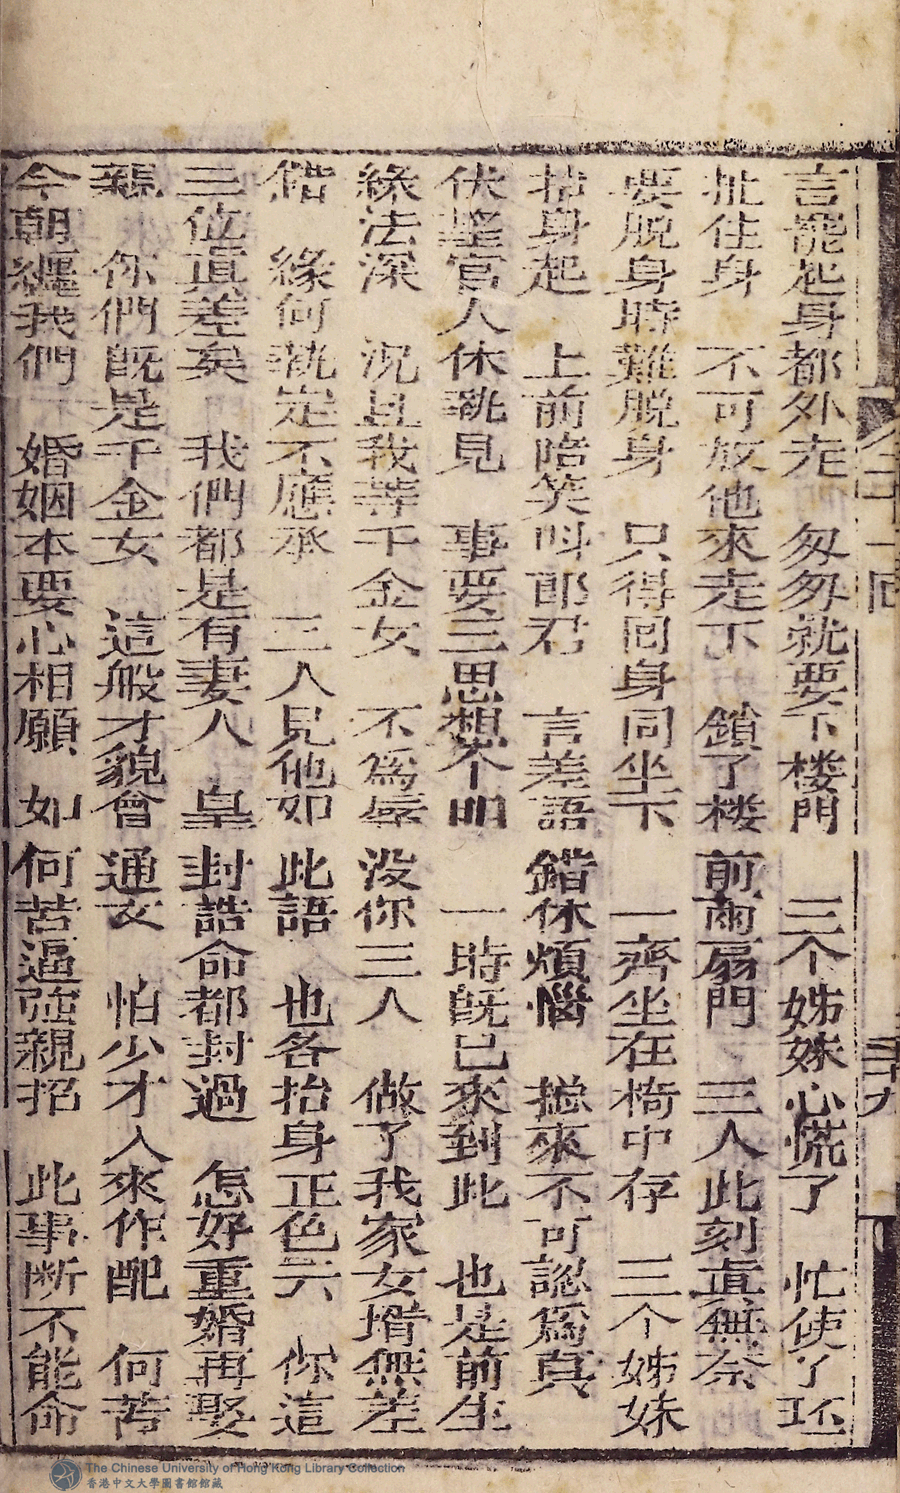 言罷起身都外走　匆匆就要下楼門　三个姊妹心慌了　忙使了环
扯住身　不可放他來走下　鎖了楼前兩扇門　三人此刻真無奈
要脫身時難脫身　只得回身同坐下　一齊坐在椅中存　三个姊妹
抬身起　上前陪笑叫郎君　言差語錯休煩惱　搃來不可認爲真
伏望官人休執見　事要三思想个明　一時旣已來到此　也是前生
緣法深　況且我等千金女　不爲辱没你三人　做了我家女壻無差
錯　緣何執定不應承　三人見他如此語　也各抬身正色云　你這
三位眞差矣　我們都是有妻人　皇封誥命都封過　怎好重婚再娶
親　你們旣是千金女　這般才貌會通文　怕少才人來作配　何苦
今朝纒我們　婚姻本要心相願　如何苦逼強親招　此事断不能命
十一回
三十九
The Chinese University of Hong Kong Library Collection
香港中文大學圖書館館藏